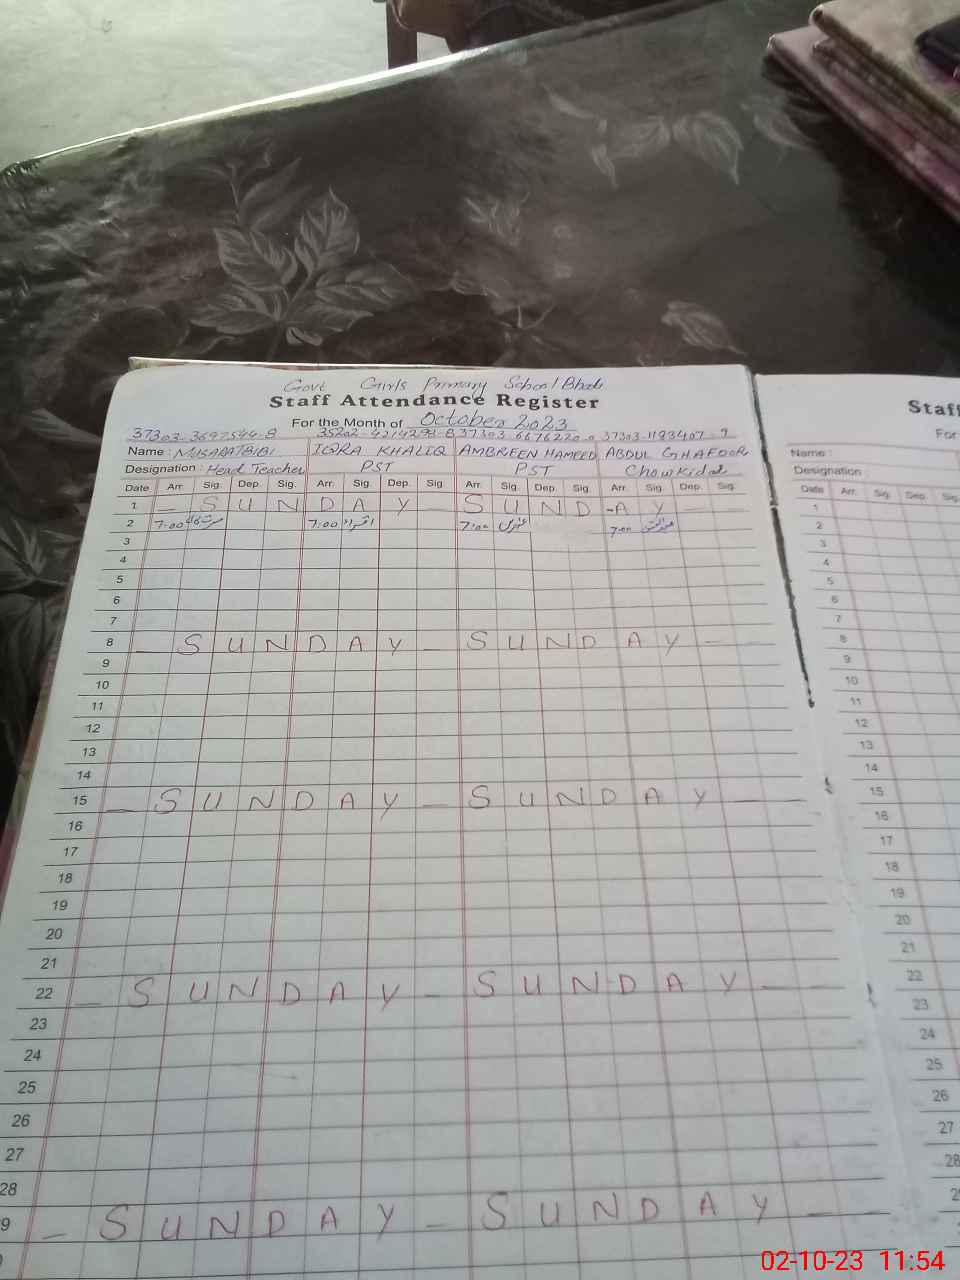 Govt Girls Primary School
Staff Attendance Register
For the Month of October 2023
37303-3697544-8 35202-4214298-8 37303-6676220-0 37303-1193407-9
Name : MUSARAT BIBI IQRA KHALIQ AMBREEN HAMEED ABDUL GHAFOOR
Designation : Head Teacher PST PST Chowkidar
Date Arr. Sig. Dep. Sig. Arr. Sig. Dep. Sig. Arr. Sig. Dep. Sig. Arr. Sig. Dep. Sig.
1 — S U N D A Y — S U N D - A Y —
2 7:00 7:00 7:00 7:00
3
4
5
6
7
8 — S U N D A Y — S U N D A Y —
9
10
11
12
13
14
15 — S U N D A Y — S U N D A Y —
16
17
18
19
20
21
22 — S U N D A Y — S U N D A Y — —
23
24
25
26
27
28
9 — S U N D A Y — S U N D A Y — —
Staf
For
Name :
Designation
Date Arr. Sig. Dep. Sig.
1
2
3
4
5
6
7
8
9
10
11
12
13
14
15
16
17
18
19
20
21
22
23
24
25
26
27
28
02-10-23 11:54